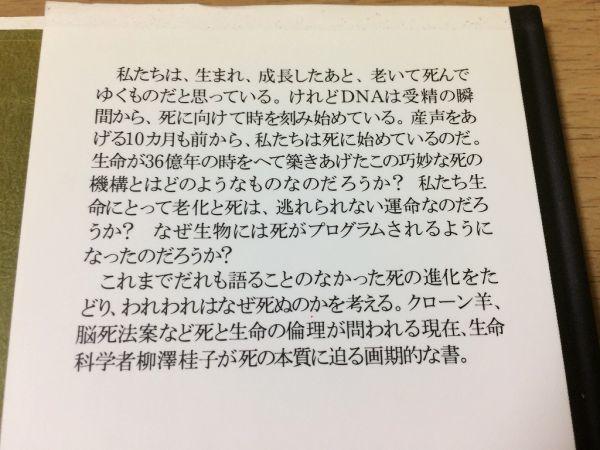 私たちは、生まれ、成長したあと、老いて死んで
ゆくものだと思っている。けれどDNAは受精の瞬
間から、死に向けて時を刻み始めている。産声をあ
げる10カ月も前から、私たちは死に始めているのだ。
生命が36億年の時をへて築きあげたこの巧妙な死の
機構とはどのようなものなのだろうか？　私たち生
命にとって老化と死は、逃れられない運命なのだろ
うか？　なぜ生物には死がプログラムされるように
なったのだろうか？
これまでだれも語ることのなかった死の進化をた
どり、われわれはなぜ死ぬのかを考える。クローン羊、
脳死法案など死と生命の倫理が問われる現在、生命
科学者柳澤桂子が死の本質に迫る画期的な書。